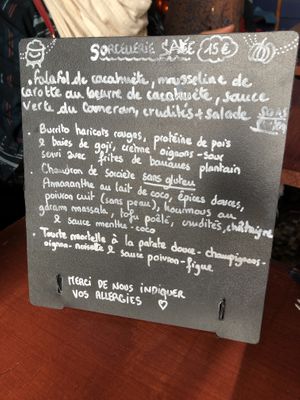 SORCELLERIE SALÉE 15€
• Falafel de cacahuète, mousseline de
carotte au beurre de cacahuète, sauce
verte du Cameroun, crudités + salade SANS
• Burrito haricots rouges, protéine de pois
& baies de goji, crème oignons-sour
servi avec frites de bananes plantain
• Chaudron de sorcière sans gluten
Ammaranthe au lait de coco, épices douces,
poivron cuit (sans peau), houmous au
garam massala, tofu poêlé, crudités, châtaigne
& sauce menthe-coco
• Tourte mortelle à la patate douce-champignons-
oignon-noisette & sauce poivron-figue
MERCI DE NOUS INDIQUER
VOS ALLERGIES ♡